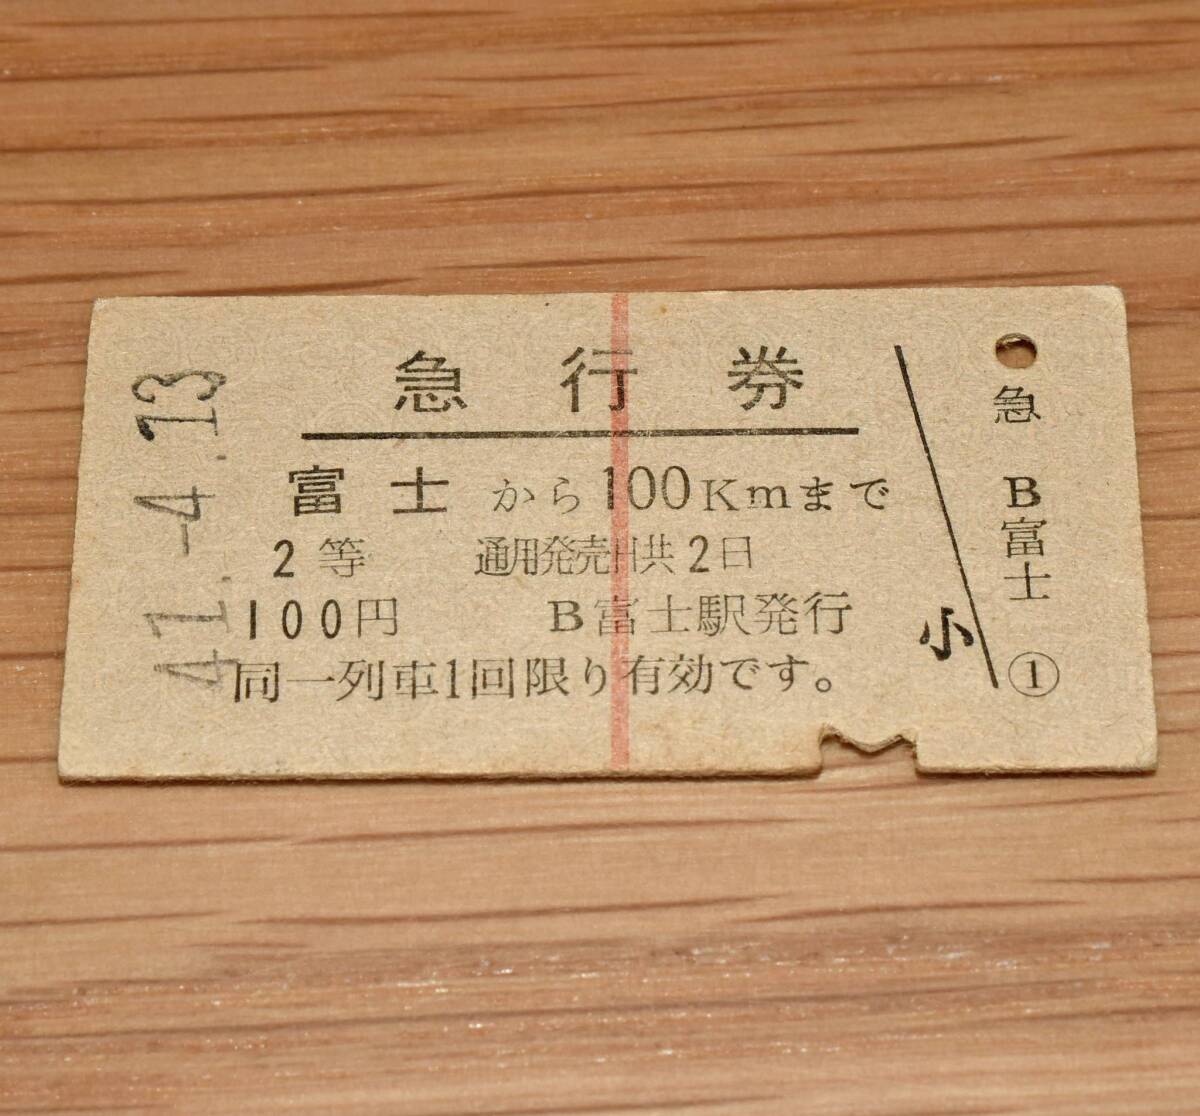 急行券
富士から100Kmまで
2等 通用発売日共2日
100円 B富士駅発行
同一列車1回限り有効です。
41.-4.13
小
急 B富士 ①